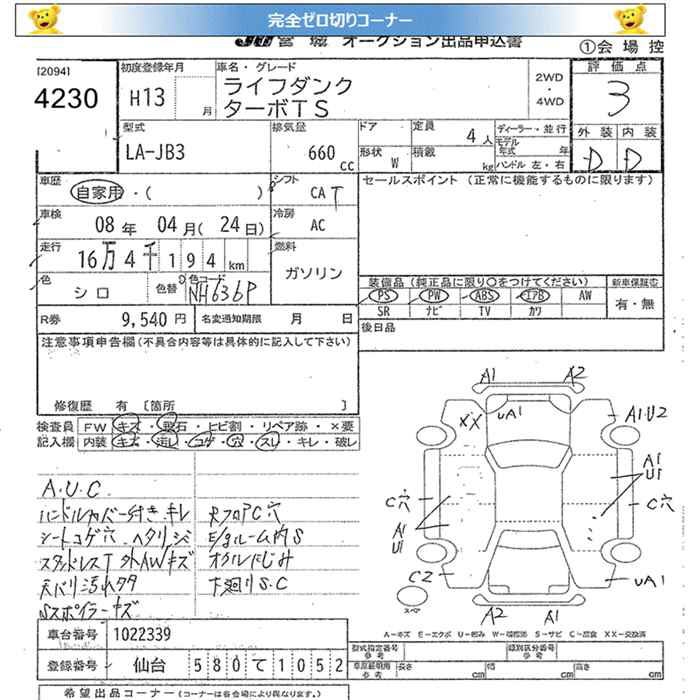 完全ゼロ切りコーナー
JU 宮城 オークション出品申込書
①会場控
[2094]
4230
初度登録年月
H13 月
車名・グレード
ライフダンク
ターボTS
2WD
・
4WD
評価点
3
外装 内装
D D
型式
LA-JB3
排気量
660 cc
ドア 定員 4人
形状 W 積載 kg
ディーラー・並行
モデル年式 年
ハンドル 左・右
車歴
自家用・( )
シフト
CA T
セールスポイント (正常に機能するものに限ります)
車検
08年 04月(24日)
冷房
AC
走行
16万4千194km
燃料
ガソリン
色
シロ
色替
色コード
NH636P
装備品(純正品に限り○をつけてください)
PS PW ABS エアB AW
SR ナビ TV カワ
新車保証書
有・無
R券 9,540円
名変通知期限 月 日
後日品
注意事項申告欄(不具合内容等は具体的に記入して下さい)
修復歴 有 〔箇所 〕
検査員記入欄
FW キズ・飛石・ヒビ割・リペア跡・×要
内装 キズ・汚レ・コゲ・穴・スレ・キレ・破レ
A.U.C
ハンドルカバー付き.キレ
シートコゲ穴 ヘタリ シミ
スタッドレスT 外AWキズ
天バリ汚れタタ
Nスポイラーキズ
RフロアC穴
E/gルーム内S
オイルにじみ
下廻りS.C
A1 A2
XX UA1
A1.U2
A1
U1
C穴
C穴
A1
U1
C2
UA1
スペア
A2 A1
A-キズ E-エクボ U-凹み W-補修跡 S-サビ C-腐食 XX-交換済
車台番号 1022339
登録番号 仙台 580 て 1052
型式指定番号 参考
類別区分番号 参考
車庫証明用 参考
長さ cm 幅 cm 高さ cm
希望出品コーナー(コーナーは各会場により異なります。)